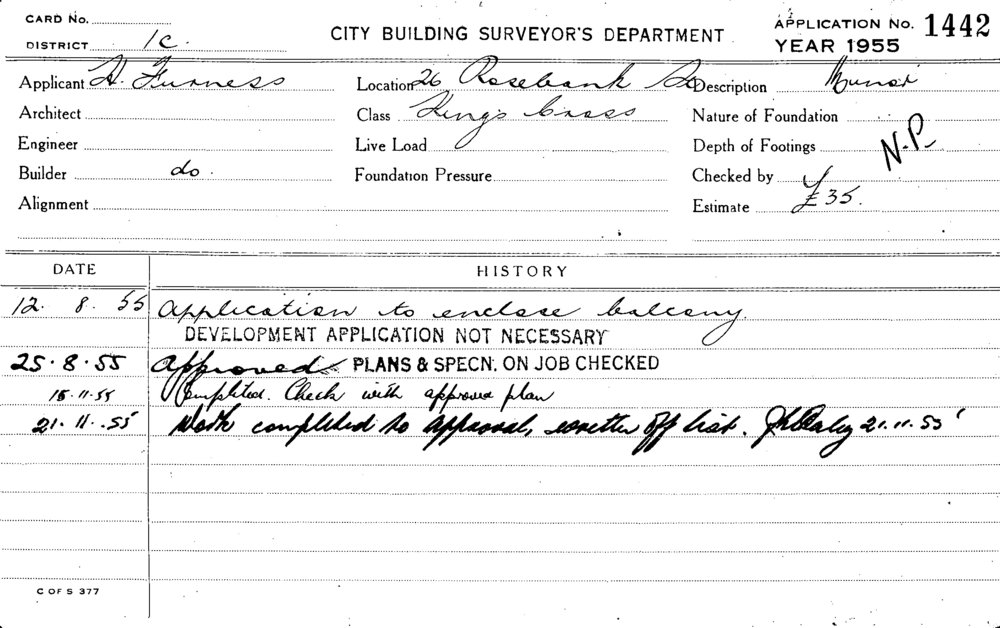 CARD No.
DISTRICT 1C.
CITY BUILDING SURVEYOR'S DEPARTMENT
APPLICATION No. 1442
YEAR 1955
Applicant H. Furness Location 26 Rosebank St Description Minor
Architect Class Kings Cross Nature of Foundation
Engineer Live Load Depth of Footings N.P.
Builder do. Foundation Pressure Checked by
Alignment Estimate £35.
DATE HISTORY
12. 8. 55 Application to enclose balcony.
DEVELOPMENT APPLICATION NOT NECESSARY
25.8.55 Approved PLANS & SPECN. ON JOB CHECKED
15.11.55 Completed. Check with approved plan
21.11.55 Work completed to approval, written off list. 21.11.55
C OF S 377